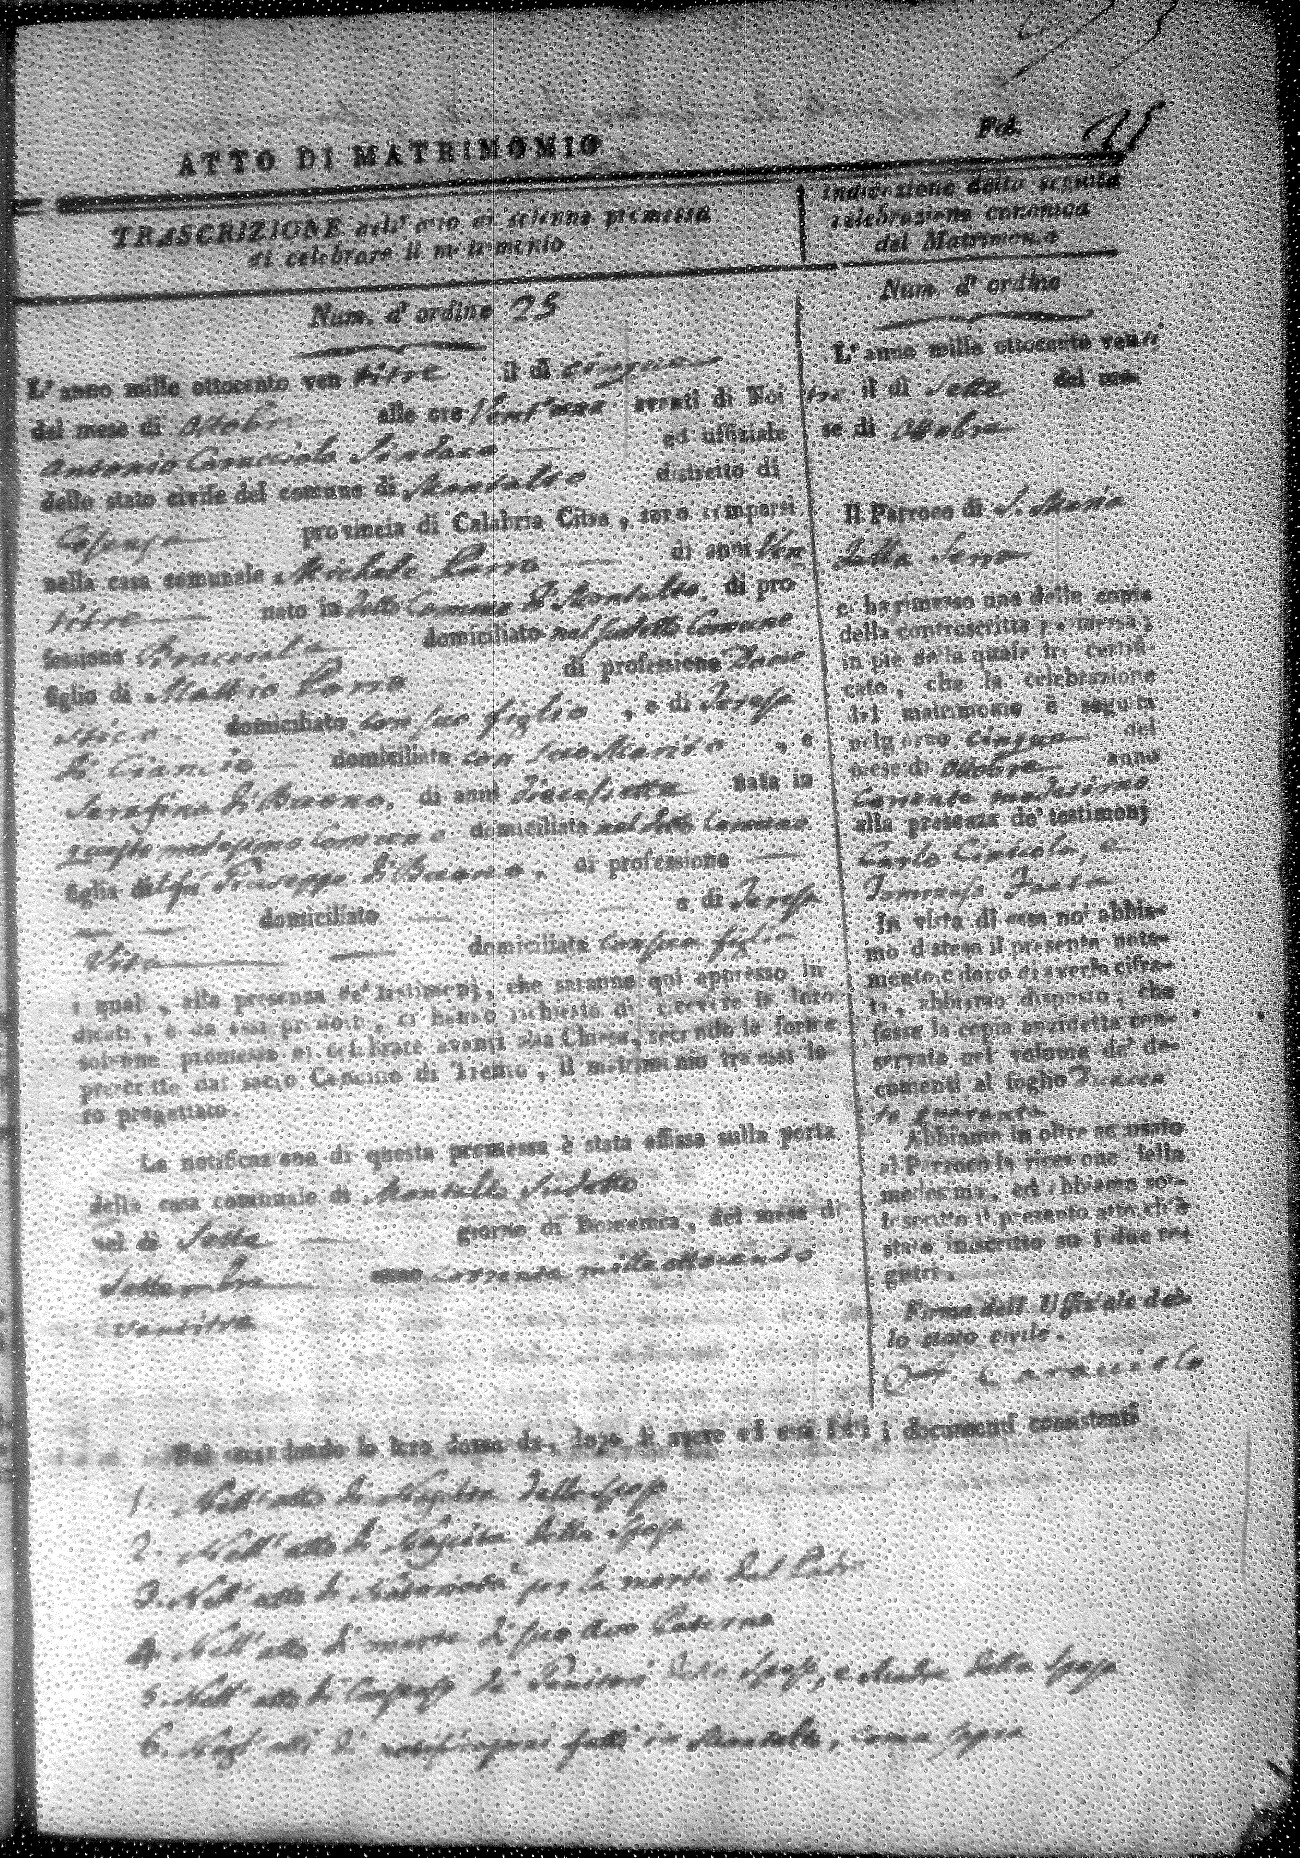 Fol. 25
ATTO DI MATRIMONIO
TRASCRIZIONE dell' atto di solenne promessa
di celebrare il matrimonio
Num. d' ordine 25
L' anno mille ottocento ven titre il dì cinque
del mese di Ottobre alle ore Vent'una avanti di Noi
Antonio Caracciolo Sindaco ed uffiziale
dello stato civile del comune di Montalto distretto di
Cosenza provincia di Calabria Citra, sono comparsi
nella casa comunale Michele Porro di anni Ven
titre nato in detto Comune di Montalto, di pro
fessione Bracciale domiciliato nel sudetto Comune
figlio di Porro di professione Dome
stico domiciliato con suo figlio, e di Teresa
di Ciancio domiciliata con suo Marito, e
Serafina di Buono, di anni Diecisette nata in
questo medesimo Comune domiciliata nel detto Comune
figlia del fu Giuseppe di Buono, di professione
domiciliato e di Teresa
Vita domiciliata con sua figlia
i quali, alla presenza de' testimonj, che saranno qui appresso in
dicati, e da essi prodotti, ci hanno richiesto di ricevere la loro
solenne promessa di celebrare avanti alla Chiesa, secondo le forme
prescritte dal sacro Concilio di Trento, il matrimonio tra essi lo-
ro progettato.
La notificazione di questa promessa è stata affissa sulla porta
della casa comunale di Montalto sudetto
nel dì Sette giorno di Domenica, del mese di
Settembre anno corrente mille ottocento
ventitre
Indicazione della seguita
celebrazione canonica
del Matrimonio
Num. d' ordine
L' anno mille ottocento venti
tre il dì Sette del me-
se di Ottobre
Il Parroco di S. Maria
della Serra
ci ha rimesso una delle copie
della controscritta promessa,
in piè della quale ha certifi-
cato, che la celebrazione
del matrimonio è seguita
nel giorno cinque del
mese di Ottobre anno
corrente medesimo
alla presenza de' testimonj
Carlo Cipolla, e
Tommaso
In vista di essa noi abbia-
mo disteso il presente nota-
mento, e dopo di averla cifra-
ta, abbiamo disposto, che
fosse la copia anzidetta con-
servata nel volume de' do-
cumenti al foglio
quaranta
Abbiamo in oltre accusato
al Parroco la ricezione della
medesima, ed abbiamo sot-
toscritto il presente atto ch'è
stato inscritto su i due re-
gistri.
Firma dell' Uffiziale del-
lo stato civile.
Caracciolo
Noi secondando la loro domanda, dopo di avere ad essi letti i documenti consistenti
1. Nell' atto di Nascita dello sposo
2. Nell' atto di Nascita della sposa
3. Nell' atto di Notorietà per la morte del Padre
4. Nell' atto di morte di suo avo Paterno
5. Nell' atto di Consenso de' Genitori dello sposo, e Madre della sposa
6. Negl' atti di notificazioni fatti in Montalto, come sopra